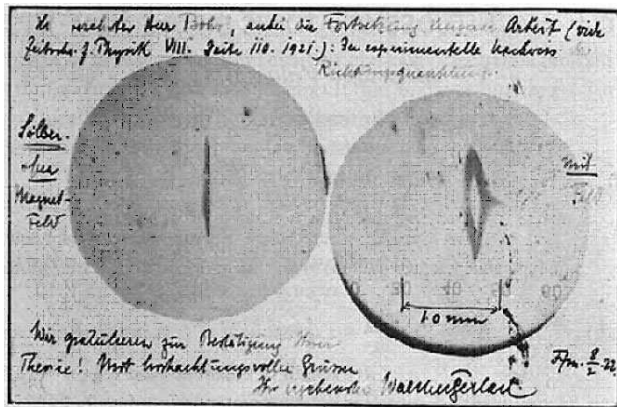 verehrter Herr Bohr, anbei die Fortsetzung unserer Arbeit (vide
Zeitschr. f. Physik VIII. Seite 110. 1921.): Der experimentelle Nachweis
Richtungsquantelung.
Silber
Magnet-
Feld
mit
Feld
1.0 mm
Wir gratulieren zur Bestätigung Ihrer
Theorie! Mit hochachtungsvollen Grüssen
Ihr ergebenster Walther Gerlach
Ffm. 8/2 22.